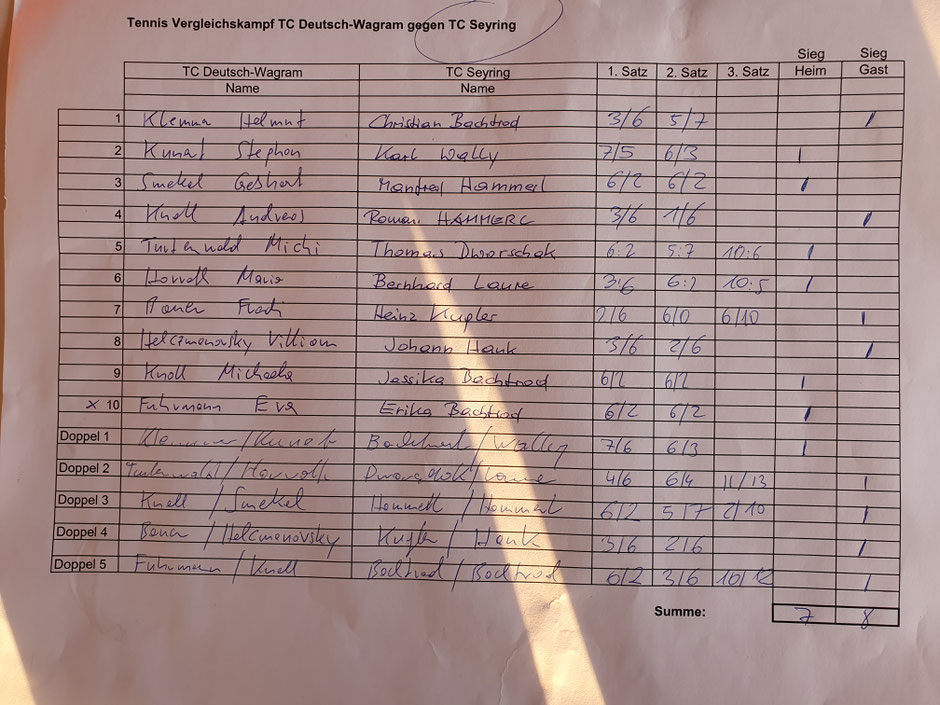 Tennis Vergleichskampf TC Deutsch-Wagram gegen TC Seyring
Sieg Sieg
TC Deutsch-Wagram TC Seyring 1. Satz 2. Satz 3. Satz Heim Gast
Name Name
1 Klemna Helmut Christian Bachtrod 3/6 5/7 /
2 Kunat Stephan Karl Wally 7/5 6/3 /
3 Smekel Gerhart Manfred Hammerl 6/2 6/2 /
4 Knoll Andreas Roman HAMMERL 3/6 1/6 /
5 Turtenwald Michi Thomas Dworschak 6:2 5:7 10:6 /
6 Horvath Mario Bernhard Laure 3:6 6:2 10:5 /
7 Heinz Kugler 2/6 6/0 6/10 /
8 Helcmanovsky Villiam Johann Hank 3/6 2/6 /
9 Knoll Michaela Jessika Bachtrod 6/2 6/2 /
x 10 Fuhrmann Eva Erika Bachtrod 6/2 6/2 /
Doppel 1 /Kunat /Wally 7/6 6/3 /
Doppel 2 /Horvath 4/6 6/4 11/13 /
Doppel 3 Knoll / Smekel Hammerl / Hammerl 6/2 5/7 2/10 /
Doppel 4 /Helcmanovsky Kugler / Hank 3/6 2/6 /
Doppel 5 Fuhrmann / Knoll Bachtrod / Bachtrod 6/2 3/6 10/12 /
Summe: 7 8